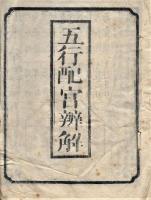 五行配宮辨解